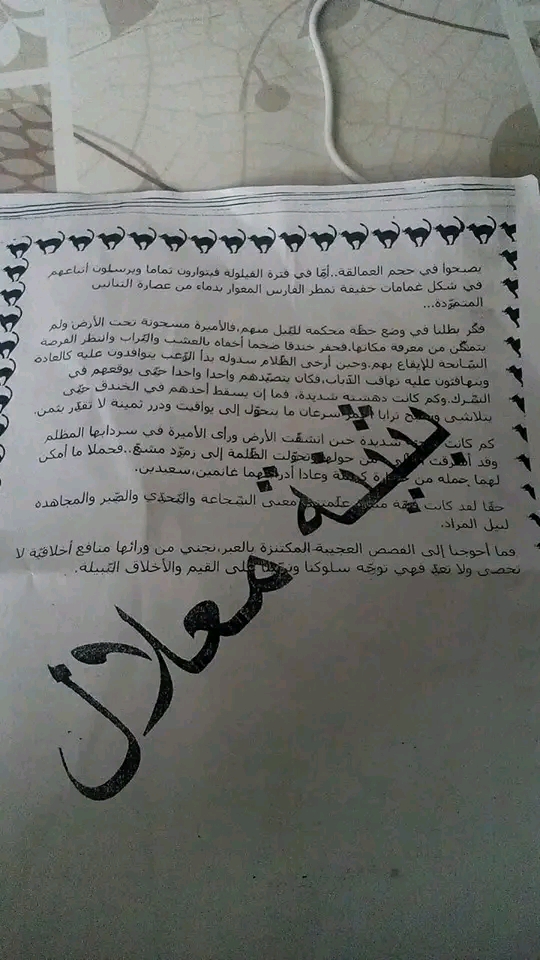 يصبحوا في حجم العمالقة..أمّا في فترة القيلولة فيتوارون تماما ويرسلون أتباعهم
في شكل غمامات خفيفة تمطر الفارس المغوار بدماء من عصارة التنانين
المتمرّدة...
فكّر بطلنا في وضع خطّة محكمة للنّيل منهم,فالأميرة مسجونة تحت الأرض ولم
يتمكّن من معرفة مكانها.فحفر خندقا ضخما أخفاه بالعشب والتّراب وانتظر الفرصة
السّانحة للإيقاع بهم.وحين أرخى الظّلام سدوله بدأ الرّعب يتوافدون عليه كالعادة
ويتهافتون عليه تهافت الذّباب,فكان يتصيّدهم واحدا واحدا حتّى يوقعهم في
الشّرك.وكم كانت دهشته شديدة، فما إن يسقط أحدهم في الخندق حتّى
يتلاشى ويصبح ترابا أحمر سرعان ما يتحوّل إلى يواقيت ودرر ثمينة لا تقدّر بثمن.
كم كانت شديدة حين انشقّت الأرض ورأى الأميرة في سردابها المظلم
وقد أشرقت من حولها وتحوّلت الظّلمة إلى زمرّد مشعّ..فحملا ما أمكن
لهما حمله من كريمة وعادا أدراجهما غانمين,سعيدين.
حقّا لقد كانت قصّة علّمتني معنى الشّجاعة والتّحدّي والصّبر والمجاهدة
لنيل المراد.
فما أحوجنا إلى القصص العجيبة المكتنزة بالعبر,نجني من ورائها منافع أخلاقيّة لا
تحصى ولا تعدّ فهي توجّه سلوكنا على القيم والأخلاق النّبيلة.
بثينة معلال